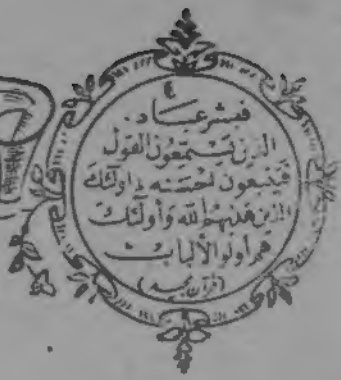 ٤
فبشر عباد.
الذين يستمعون القول
فيتبعون احسنه ‌اولئك
الذين هدىهم الله واولئك
هم أولو الألباب
(قرآن مجيد)